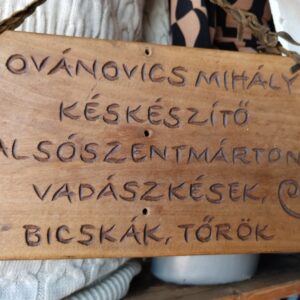 OVÁNOVICS MIHÁLY
KÉSKÉSZÍTŐ
ALSÓSZENTMÁRTON
VADÁSZKÉSEK,
BICSKÁK, TŐRÖK